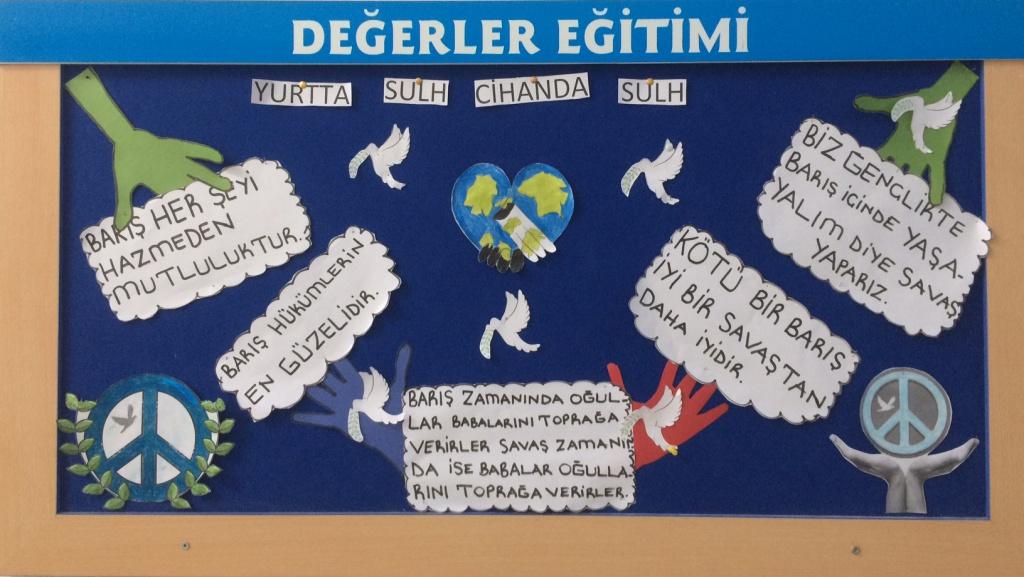 DEĞERLER EĞİTİMİ
YURTTA SULH CİHANDA SULH
BARIŞ HER ŞEYİ
HAZMEDEN
MUTLULUKTUR.
BARIŞ HÜKÜMLERİN
EN GÜZELİDİR.
BARIŞ ZAMANINDA OĞUL-
LAR BABALARINI TOPRAĞA
VERİRLER SAVAŞ ZAMANIN
DA İSE BABALAR OĞULLA
RINI TOPRAĞA VERİRLER.
KÖTÜ BİR BARIŞ
İYİ BİR SAVAŞTAN
DAHA İYİDİR.
BİZ GENÇLİKTE
BARIŞ İÇİNDE YAŞA-
YALIM DİYE SAVAŞ
YAPARIZ.